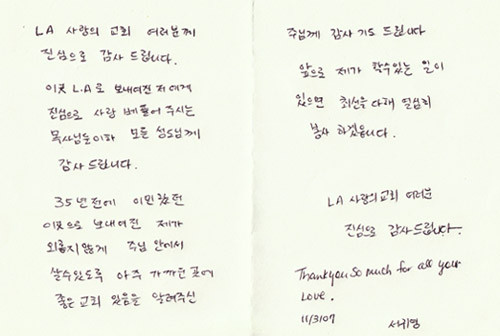 LA 사랑의 교회 여러분께
진심으로 감사 드립니다.
이곳 L.A로 보내여진 저에게
진심으로 사랑 베풀어 주시는
목사님들이하 모든 성도님께
감사드립니다.
35년전에 이민왔던
이곳으로 보내여진 제가
외롭지않게 주님 안에서
살수있도록 아주 가까운 곳에
좋은 교회 있음을 알려주신
주님께 감사 기도 드립니다
앞으로 제가 할수있는 일이
있으면 최선을 다해 열심히
봉사 하겠읍니다.
LA 사랑의 교회 여러분
진심으로 감사드립니다.
Thankyou so much for all your
Love.
11/3/07